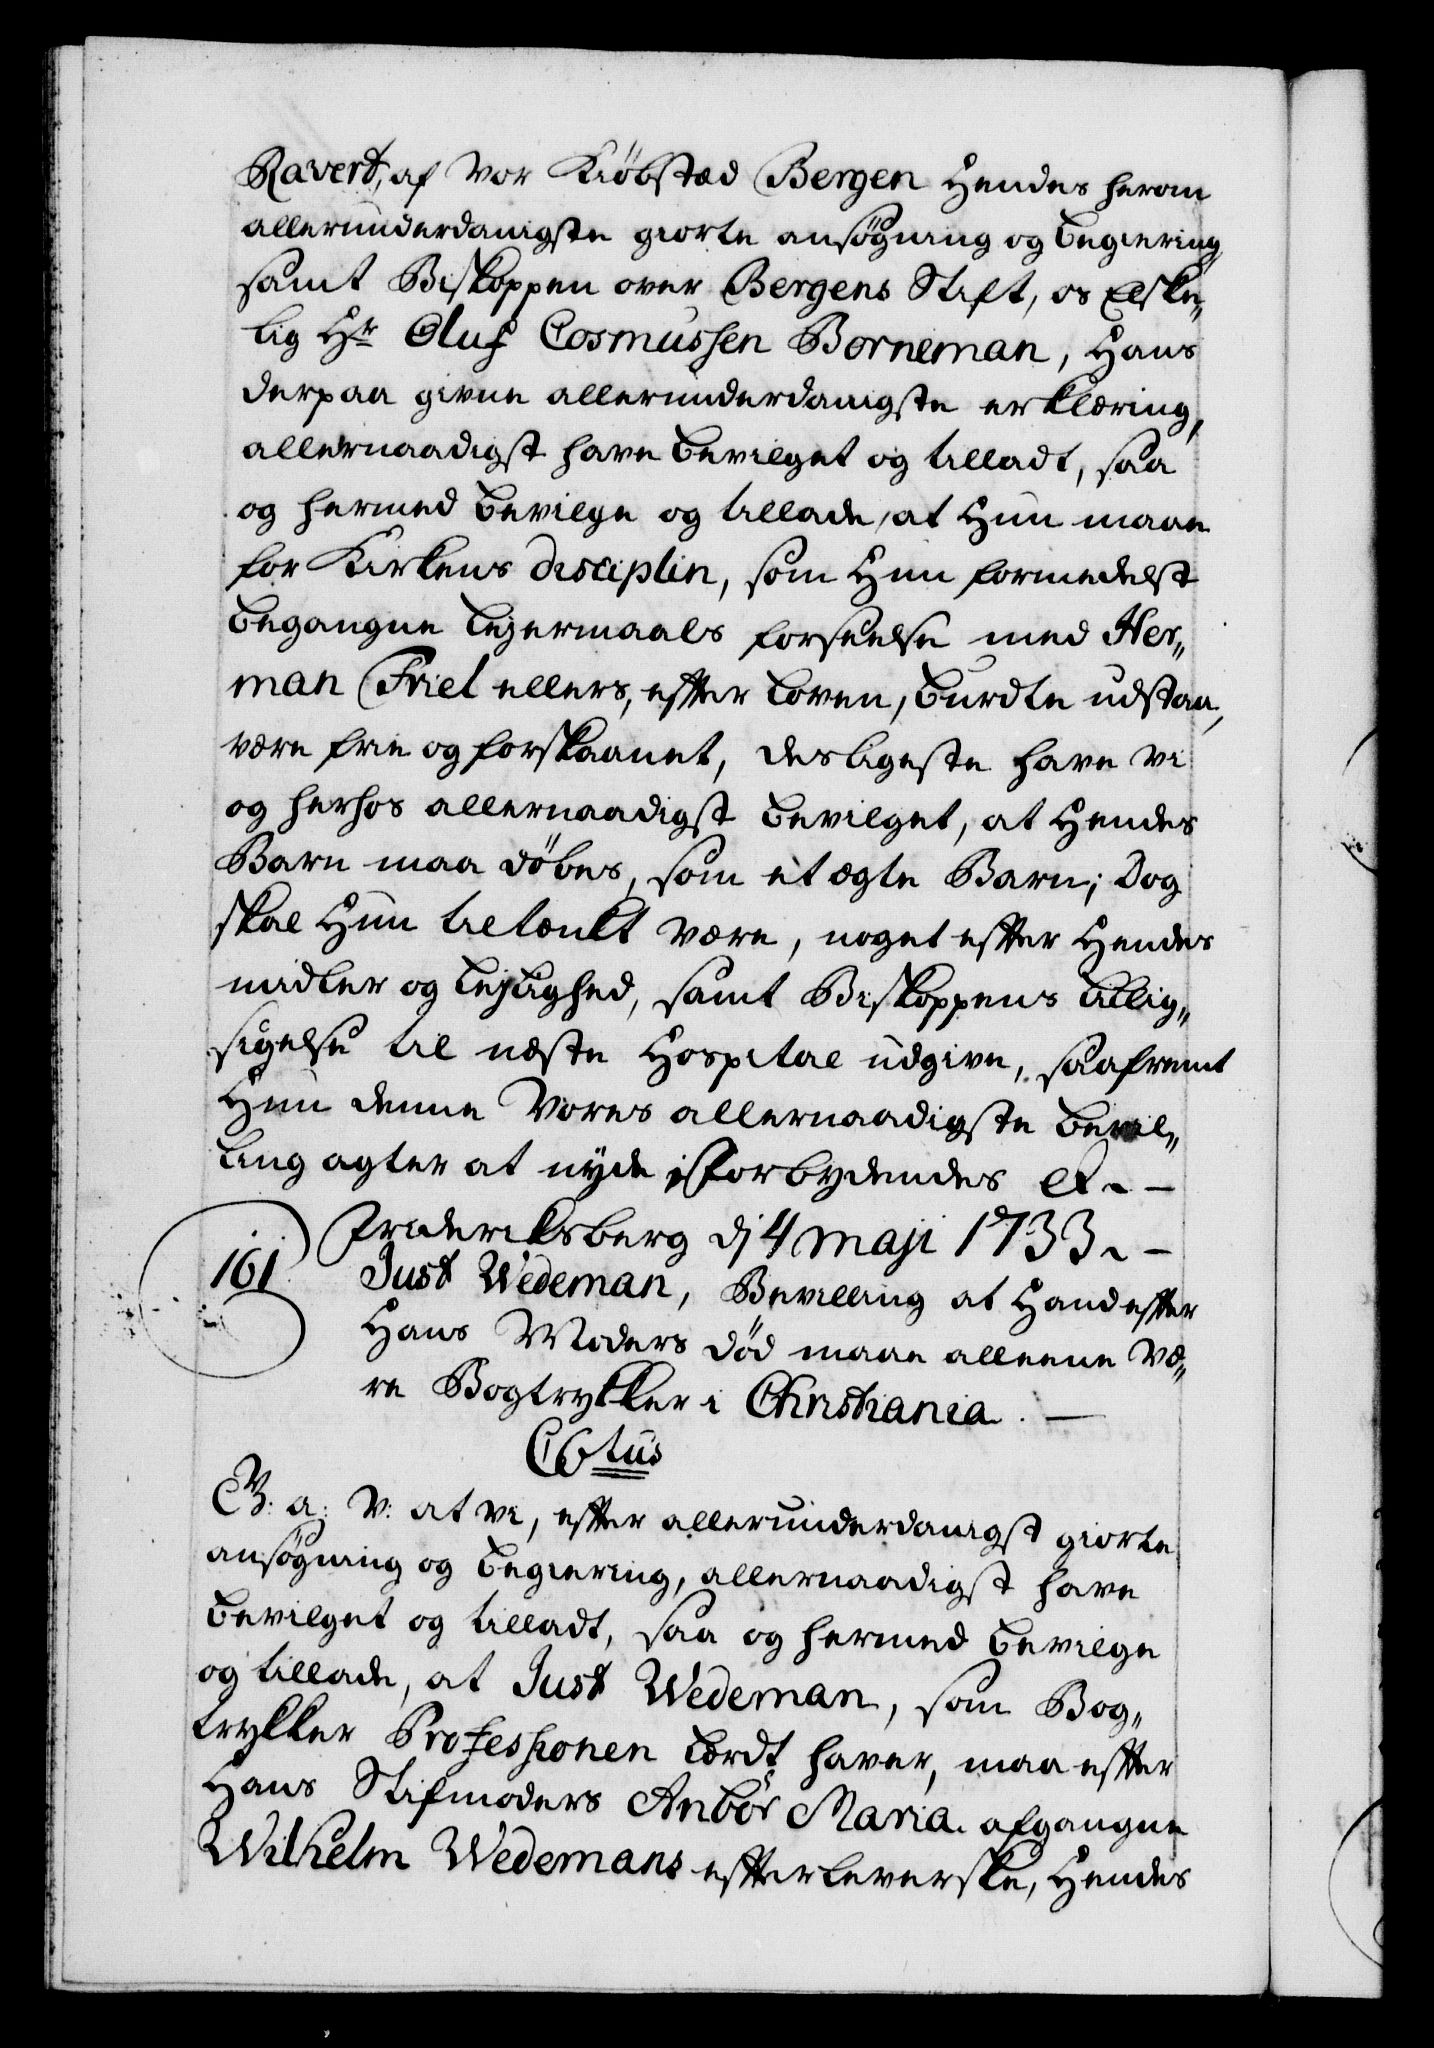 Ravert, af Vor Kiöbstæd Bergen Hendes herom
allerunderdanigste giorte ansøgning og begiering
samt Biskoppen over Bergens Stift, os Elske„
lig Hr Oluf Cosmussen Borneman, Hans
derpaa givne allerunderdanigste erklæring,
allernaadigst have bevilget og tilladt, saa
og hermed bevilge og tillade, at Hun maae
for Kirkens disciplin, som Hun formedelst
begangne Lejermaals forseelse med Her„
man Friel ellers, efter Loven, burdte udstaa,
være frie og forskaanet, desligeste have vi
og herhos allernaadigst bevilget, at Hendes
Barn maa döbes, som et ægte Barn; Dog
skal Hun tiltænkt være, noget efter Hendes
midler og Lejlighed, samt Biskoppens tillig„
sigelse til næste Hospital udgive, saafremt
Hun denne Vores allernaadigste bevil„
ling agter at nyde. Forbydendes etc. –
Friderichsberg dj 4 maji 1733. –
161 Just Wedeman, Bevilling at Hand efter
Hans Moders död maae alleene væ„
re Bogtrykker i Christiania. –
C6tus
G. V. a: V: at vi, efter allerunderdanigst giorte
ansögning og begiering, allernaadigst have
bevilget og tilladt, saa og hermed bevilge
og tillade, at Just Wedeman, som Bog„
trykker Professionen lærdt haver, maa efter
Hans Stifmoders Anbör Maria afgangne
Wilhelm Wedemans efterleverske, Hendes